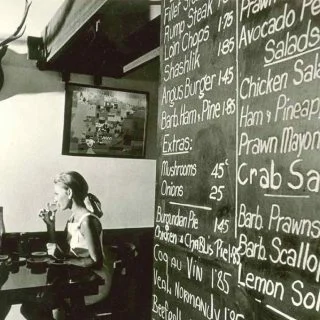 Fillet Steak
Rump Steak 1.75
Loin Chops 1.85
Shashlik
Angus Burger 1.45
Barb. Ham & Pine 1.85
Extras:
Mushrooms 45c
Onions 25
Burgundian Pie 1.45
Chicken & Chablis Pie 1.85
Coq au Vin 1.85
Veal Normandy 1.85
Prawn
Avocado Pe
Salads
Chicken Sala
Ham & Pineapp
Prawn Mayon
Crab Sa
Barb. Prawns
Barb. Scallop
Lemon Sol